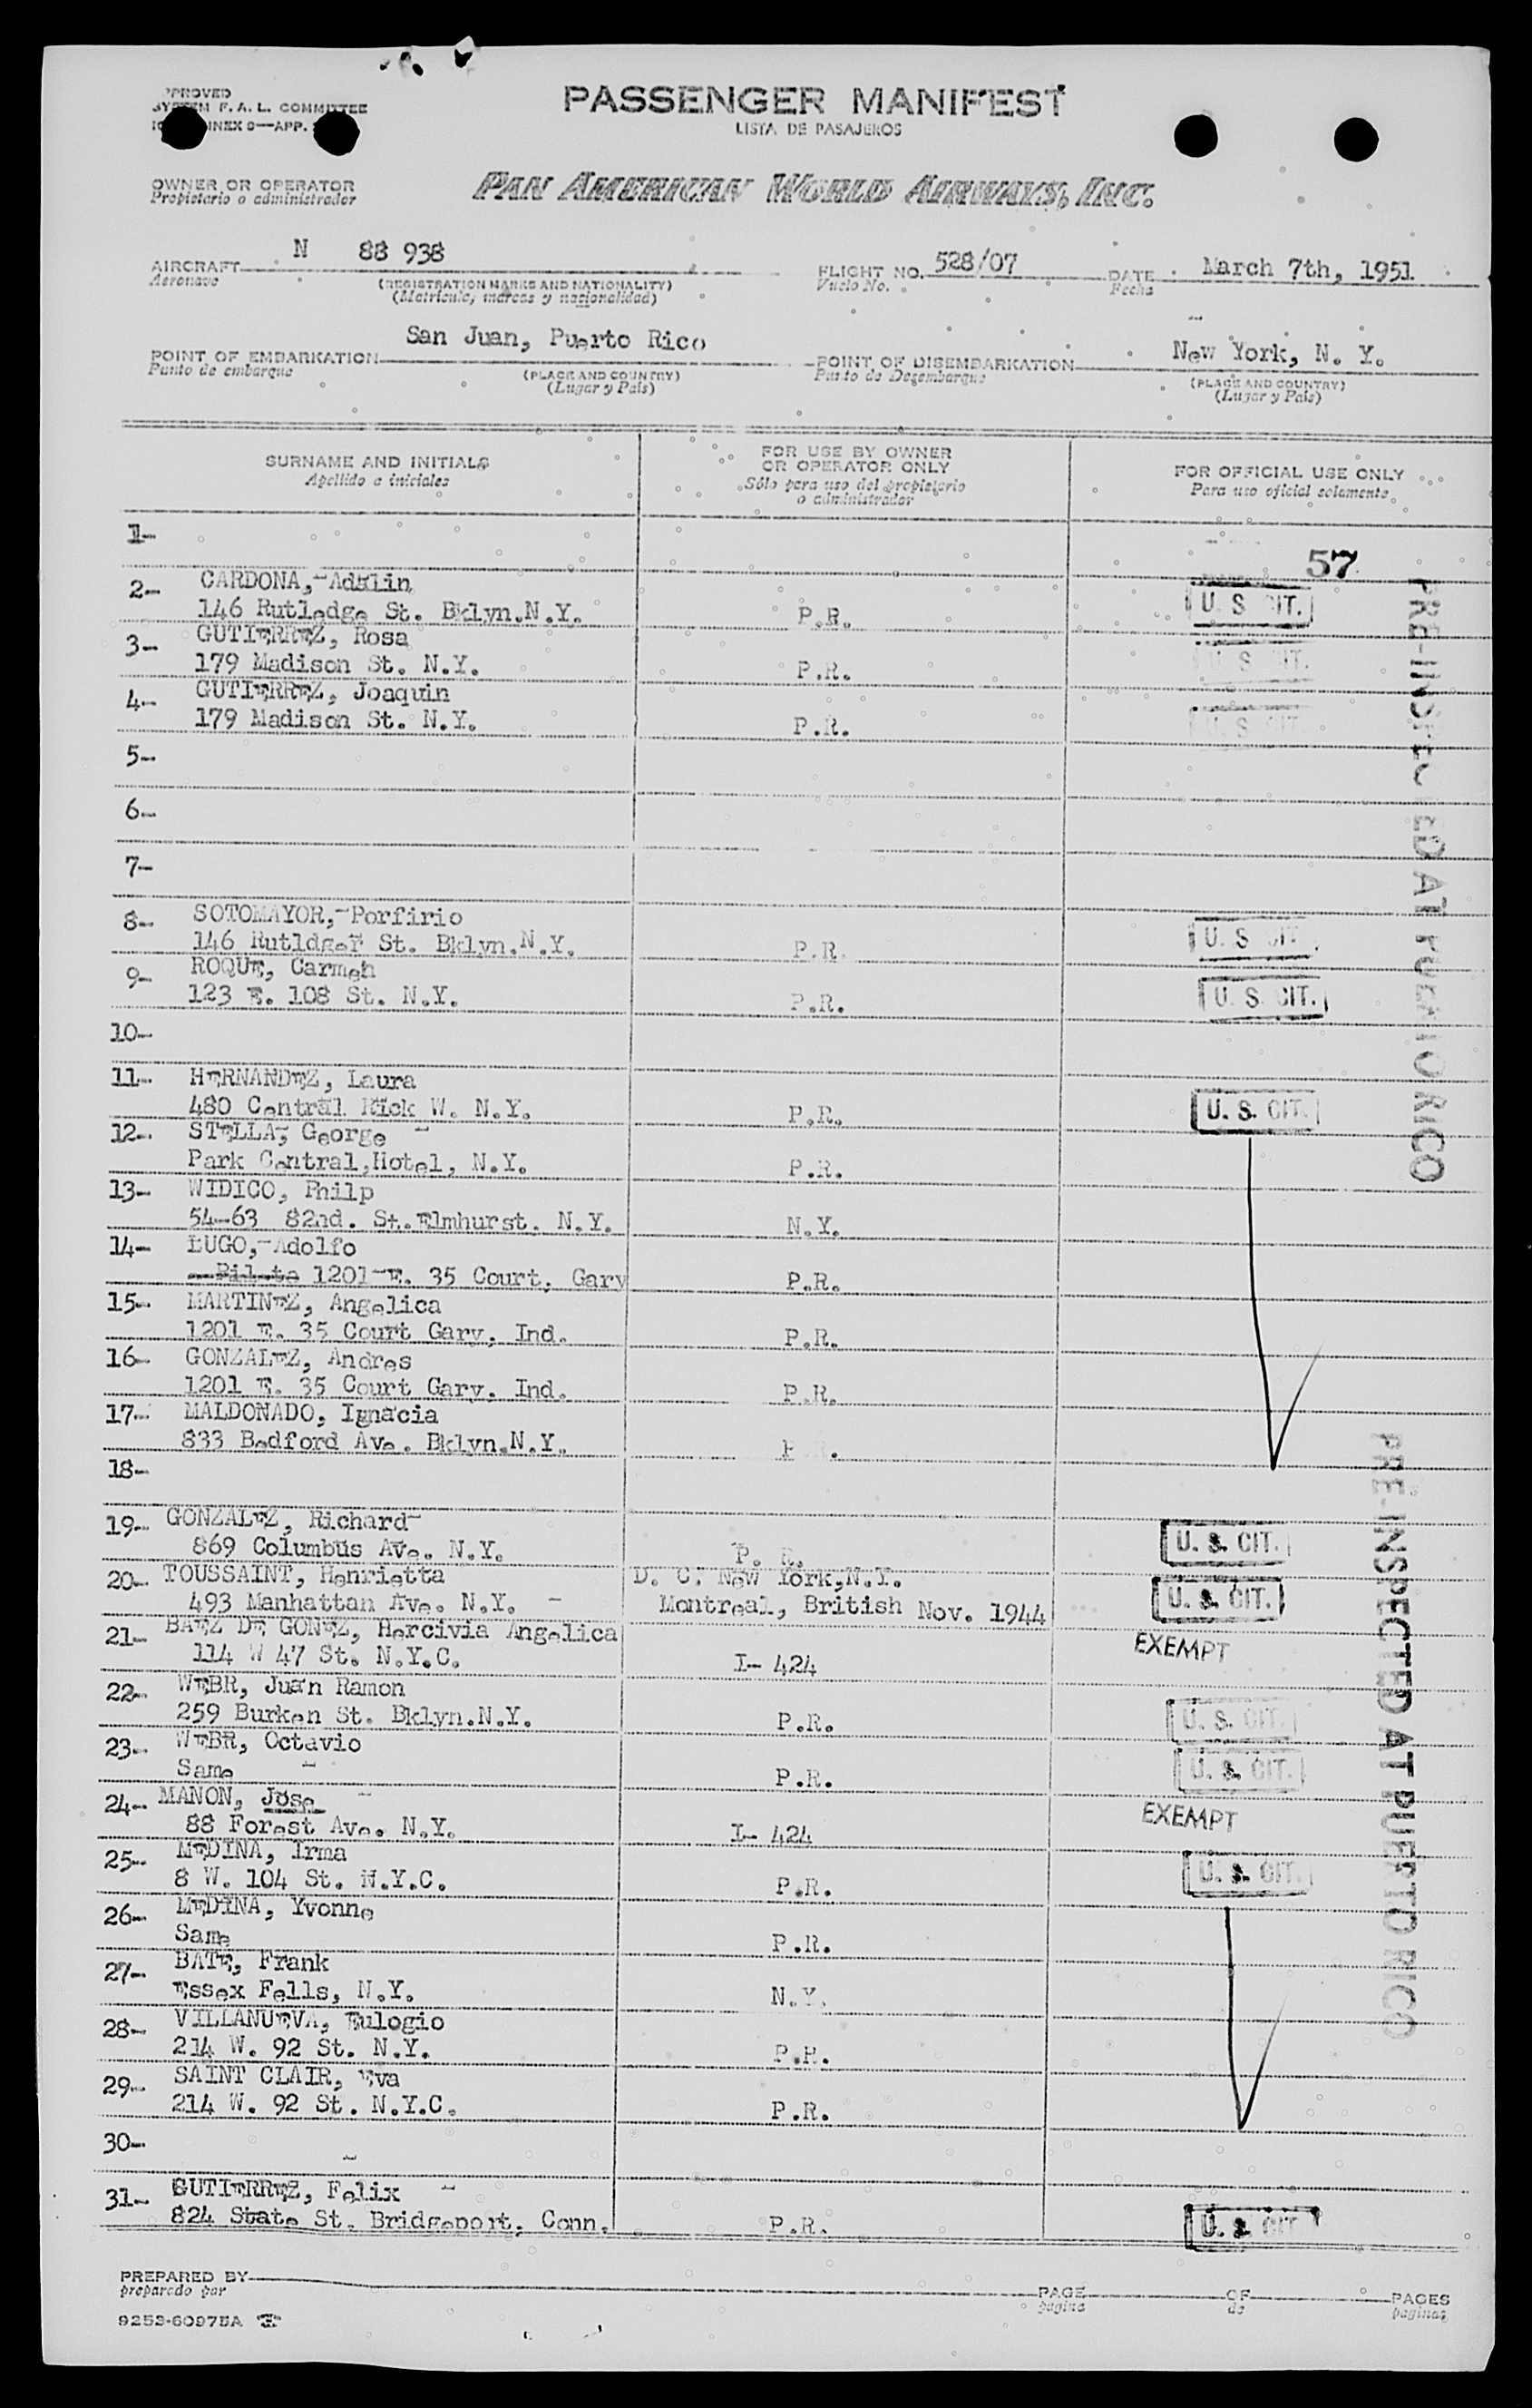 PPROVED
SYSTEM F. A. L. COMMITTEE
INEX 9—APP.
PASSENGER MANIFEST
LISTA DE PASAJEROS
OWNER OR OPERATOR
Propietario o administrador
PAN AMERICAN WORLD AIRWAYS, INC.
AIRCRAFT N 88 938
Aeronave
(REGISTRATION MARKS AND NATIONALITY)
(Matricula, marcas y nacionalidad)
FLIGHT NO. 528/07
Vuelo No.
DATE March 7th, 1951
Fecha
POINT OF EMBARKATION San Juan, Puerto Rico
Punto de embarque
(PLACE AND COUNTRY)
(Lugar y Pais)
POINT OF DISEMBARKATION New York, N. Y.
Punto de Desembarque
(PLACE AND COUNTRY)
(Lugar y Pais)
SURNAME AND INITIALS
Apellido a iniciales
FOR USE BY OWNER
OR OPERATOR ONLY
Sólo para uso del propietario
o administrador
FOR OFFICIAL USE ONLY
Para uso oficial solamente
1-
57
2- CARDONA,-Adalin
146 Rutledge St. Bklyn.N.Y. P.R. U. S. CIT.
3- GUTIERREZ, Rosa
179 Madison St. N.Y. P.R. U. S. CIT.
4- GUTIERREZ, Joaquin
179 Madison St. N.Y. P.R. U. S. CIT.
5-
6-
7-
8- SOTOMAYOR,-Porfirio
146 Rutldger St. Bklyn.N.Y. P.R. U. S. CIT.
9- ROQUE, Carmen
123 E. 108 St. N.Y. P.R. U. S. CIT.
10-
PRE-INSPECTED AT PUERTO RICO
11- HERNANDEZ, Laura
480 Central W. N.Y. P.R. U. S. CIT.
12- STELLA, George -
Park Central,Hotel, N.Y. P.R.
13- WIDICO, Philp
54-63 82nd. St.Elmhurst. N.Y. N.Y.
14- LUGO,-Adolfo
1201 E. 35 Court, Gary P.R.
15- MARTINEZ, Angelica
1201 E. 35 Court Gary, Ind. P.R.
16- GONZALEZ, Andres
1201 E. 35 Court Gary, Ind. P.R.
17- MALDONADO, Ignacia
833 Bedford Ave. Bklyn.N.Y. P R.
18-
19- GONZALEZ, Richard-
869 Columbus Ave. N.Y. P. R. U. S. CIT.
20- TOUSSAINT, Henrietta D. C. New York,N.Y.
493 Manhattan Ave. N.Y. - Montreal, British Nov. 1944 U. S. CIT.
21- BAEZ DE GONEZ, Hercivia Angelica
114 W 47 St. N.Y.C. I- 424 EXEMPT
22- WEBR, Juan Ramon
259 Burken St. Bklyn.N.Y. P.R. U. S. CIT.
23- WEBR, Octavio
Same - P.R. U. S. CIT.
24- MANON, Jose -
88 Forest Ave. N.Y. I- 424 EXEMPT
25- MEDINA, Irma
8 W. 104 St. N.Y.C. P.R. U. S. CIT.
26- MEDINA, Yvonne
Same P.R.
27- BATE, Frank
Essex Fells, N.Y. N.Y.
28- VILLANUEVA, Eulogio
214 W. 92 St. N.Y. P.R.
29- SAINT CLAIR, Eva
214 W. 92 St. N.Y.C. P.R.
30-
31- GUTIERREZ, Felix -
824 State St. Bridgeport, Conn. P.R. U. S. CIT
PRE-INSPECTED AT PUERTO RICO
PREPARED BY
preparado por
PAGE OF PAGES
pagina de paginas
9253-60975A